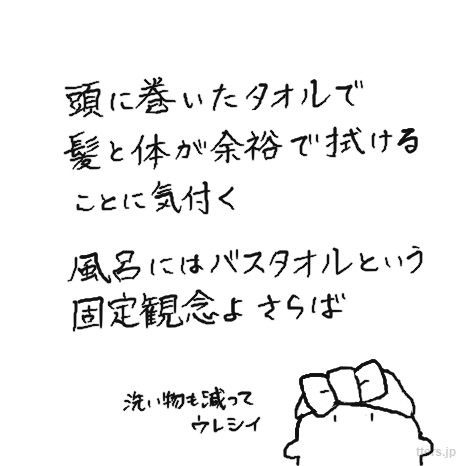 頭に巻いたタオルで
髪と体が余裕で拭ける
ことに気付く
風呂にはバスタオルという
固定観念よさらば
洗い物も減って
ウレシイ
ttars.jp